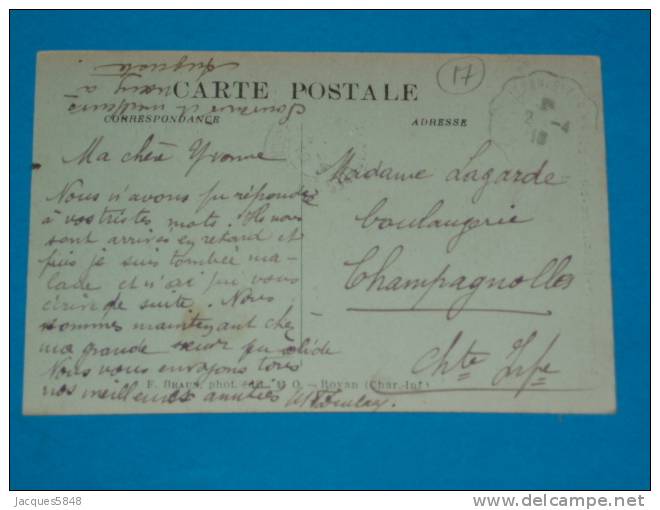 CARTE POSTALE
17
CORRESPONDANCE
ADRESSE
Souvenir et meilleurs
à
Ma chère Yvonne
Nous n'avons pu répondre
à vos tristes mots. Ils nous
sont arrivés en retard et
puis je suis tombée ma-
lade et n'ai pu vous
écrire de suite. Nous
sommes maintenant chez
ma grande sœur
Nous vous envoyons tous
nos meilleures amitiés
Madame Lagarde
boulangerie
Champagnolles
Chte Infre
F. BRAUN, phot. édit. Royan (Char.-Inf.)
2 -4
18
Jacques5848
http://www.delcampe.net